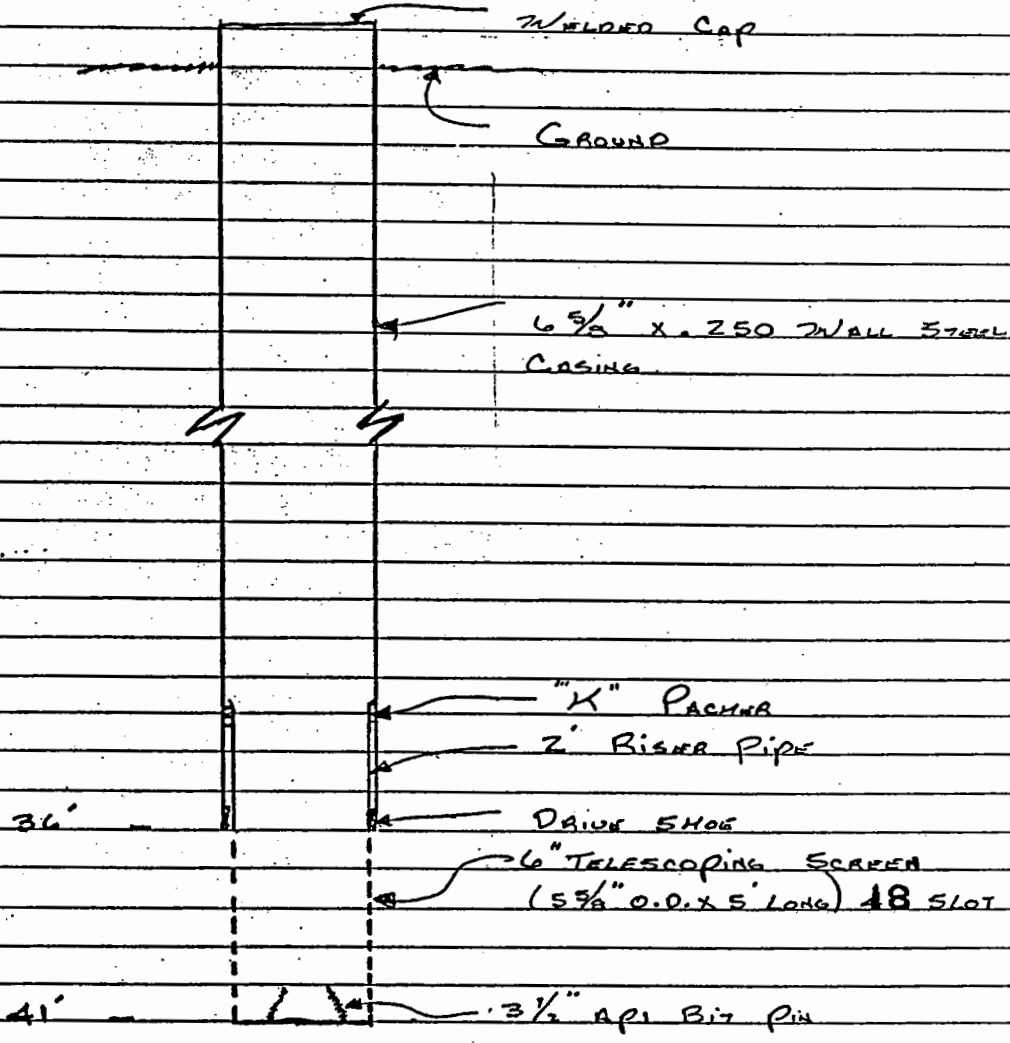 WELDED CAP
GROUND
6 5/8" X .250 WALL STEEL
CASING
"K" PACKER
2' RISER PIPE
36'
DRIVE SHOE
6" TELESCOPING SCREEN
(5 5/8" O.D. X 5' LONG) 18 SLOT
41'
3 1/2" API BIT PIN